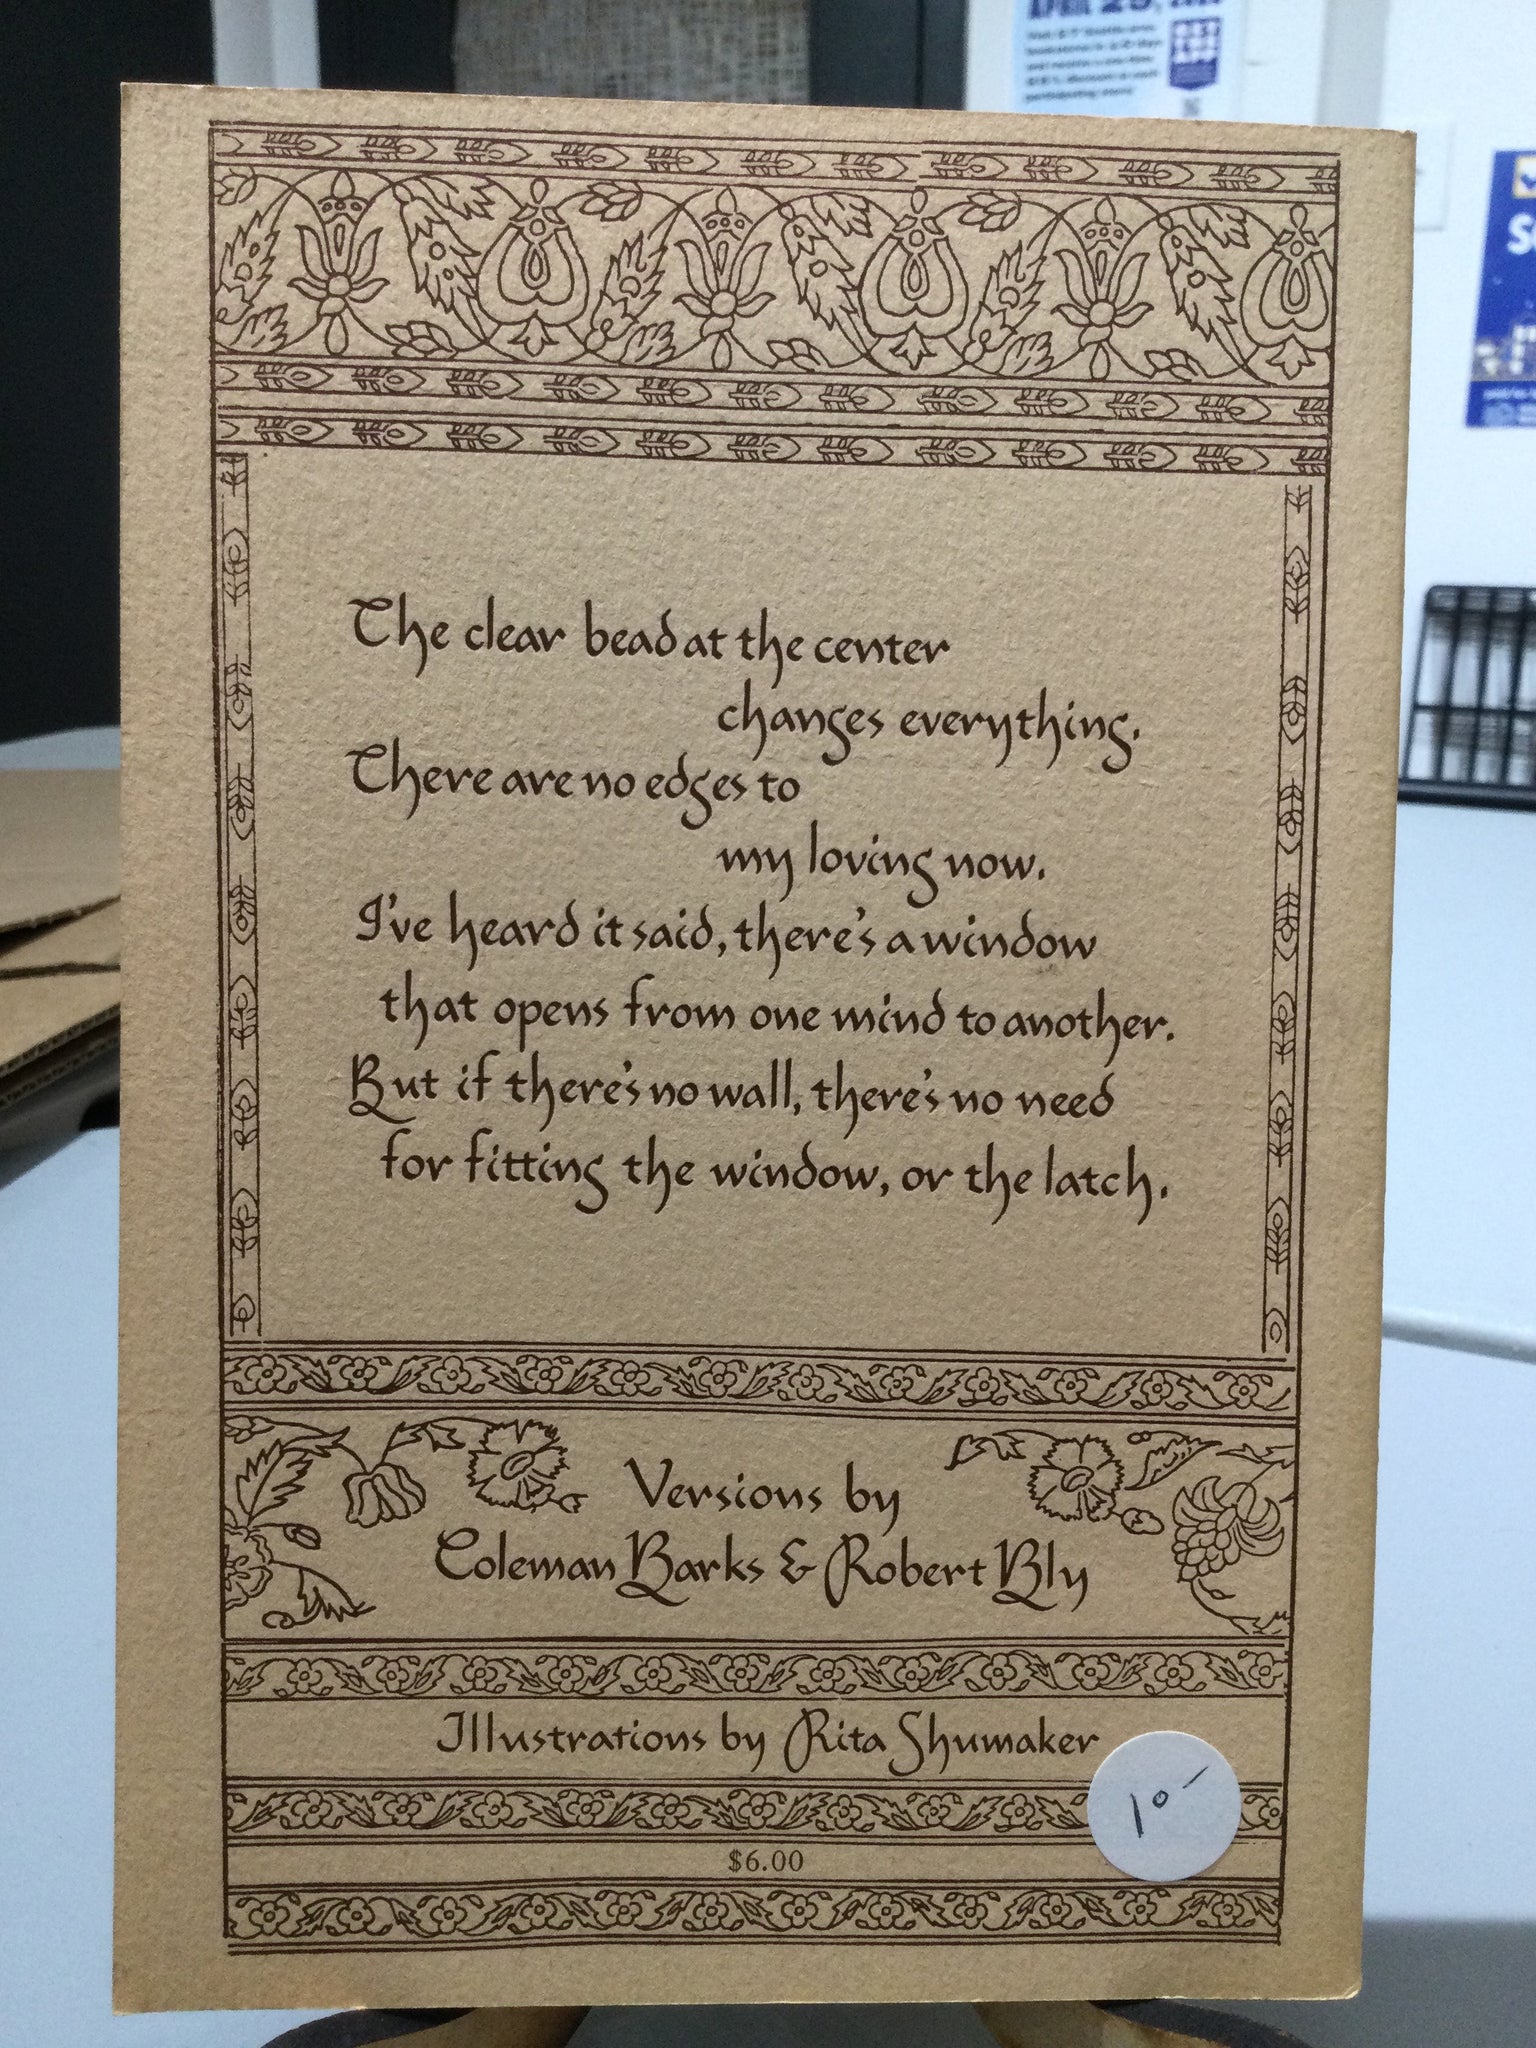 APRIL 25,
The clear bead at the center
changes everything.
There are no edges to
my loving now.
I've heard it said, there's a window
that opens from one mind to another.
But if there's no wall, there's no need
for fitting the window, or the latch.
Versions by
Coleman Barks & Robert Bly
Illustrations by Rita Shumaker
10-
$6.00